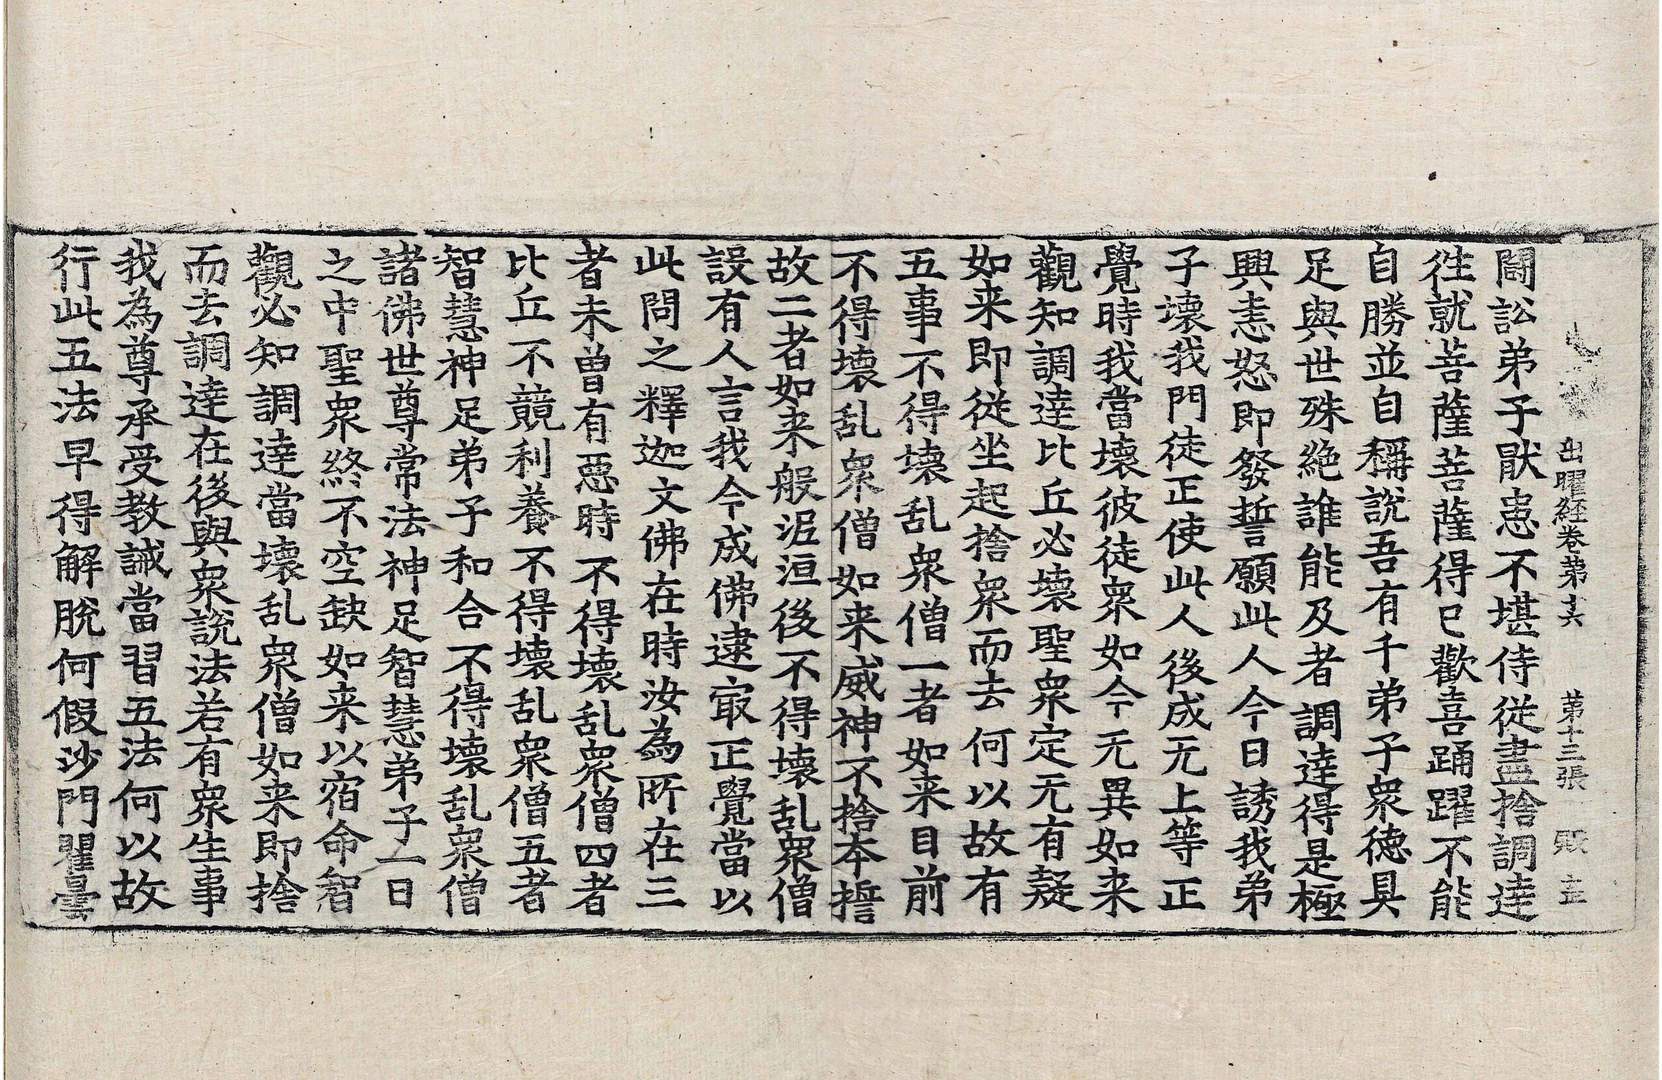 出曜経巻苐十六 苐十三張 㱾 主
鬪訟弟子猒患不堪侍從盡捨調達
徃就菩薩菩薩得已歡喜踊躍不能
自勝並自稱說吾有千弟子衆德具
足與世殊絶誰能及者調達得是極
興恚怒即發誓願此人今日誘我弟
子壞我門徒正使此人後成无上等正
覺時我當壞彼徒衆如今无異如来
觀知調達比丘必壞聖衆定无有疑
如来即從坐起捨衆而去何以故有
五事不得壞乱衆僧一者如来目前
不得壞乱衆僧如来威神不捨本誓
故二者如来般泥洹後不得壞乱衆僧
設有人言我今成佛逮㝡正覺當以
此問之釋迦文佛在時汝為所在三
者未曾有惡時不得壞乱衆僧四者
比丘不競利養不得壞乱衆僧五者
智慧神足弟子和合不得壞乱衆僧
諸佛世尊常法神足智慧弟子一日
之中聖衆終不空缺如来以宿命智
觀必知調達當壞乱衆僧如来即捨
而去調達在後與衆說法若有衆生事
我為尊承受教誡當習五法何以故
行此五法早得解脫何假沙門瞿曇